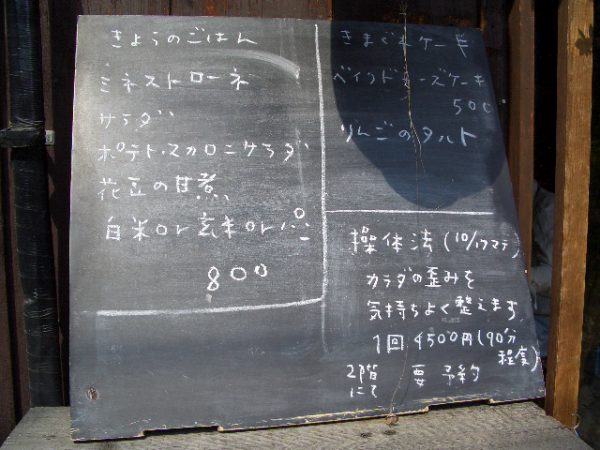 きょうのごはん
ミネストローネ
サラダ
ポテト・マカロニサラダ
花豆の甘煮
白米or玄米orパン
800
きまぐれケーキ
ベイクドチーズケーキ
500
りんごのタルト
操体法(10/17マデ)
カラダの歪みを
気持ちよく整えます
1回 4500円(90分
程度)
2階
にて
要 予約